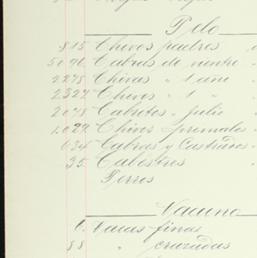 Pelo
815 Chivos padres
5090 Cabras de vientre
2278 Chivas " 1 año
2327 Chivos " 1 "
2048 Cabritos " julio
1.027 Chivos
634 Cabras y Castrones
35 Cabestros
Perros
Vacuno
6. Vacas finas
88 " cruzadas